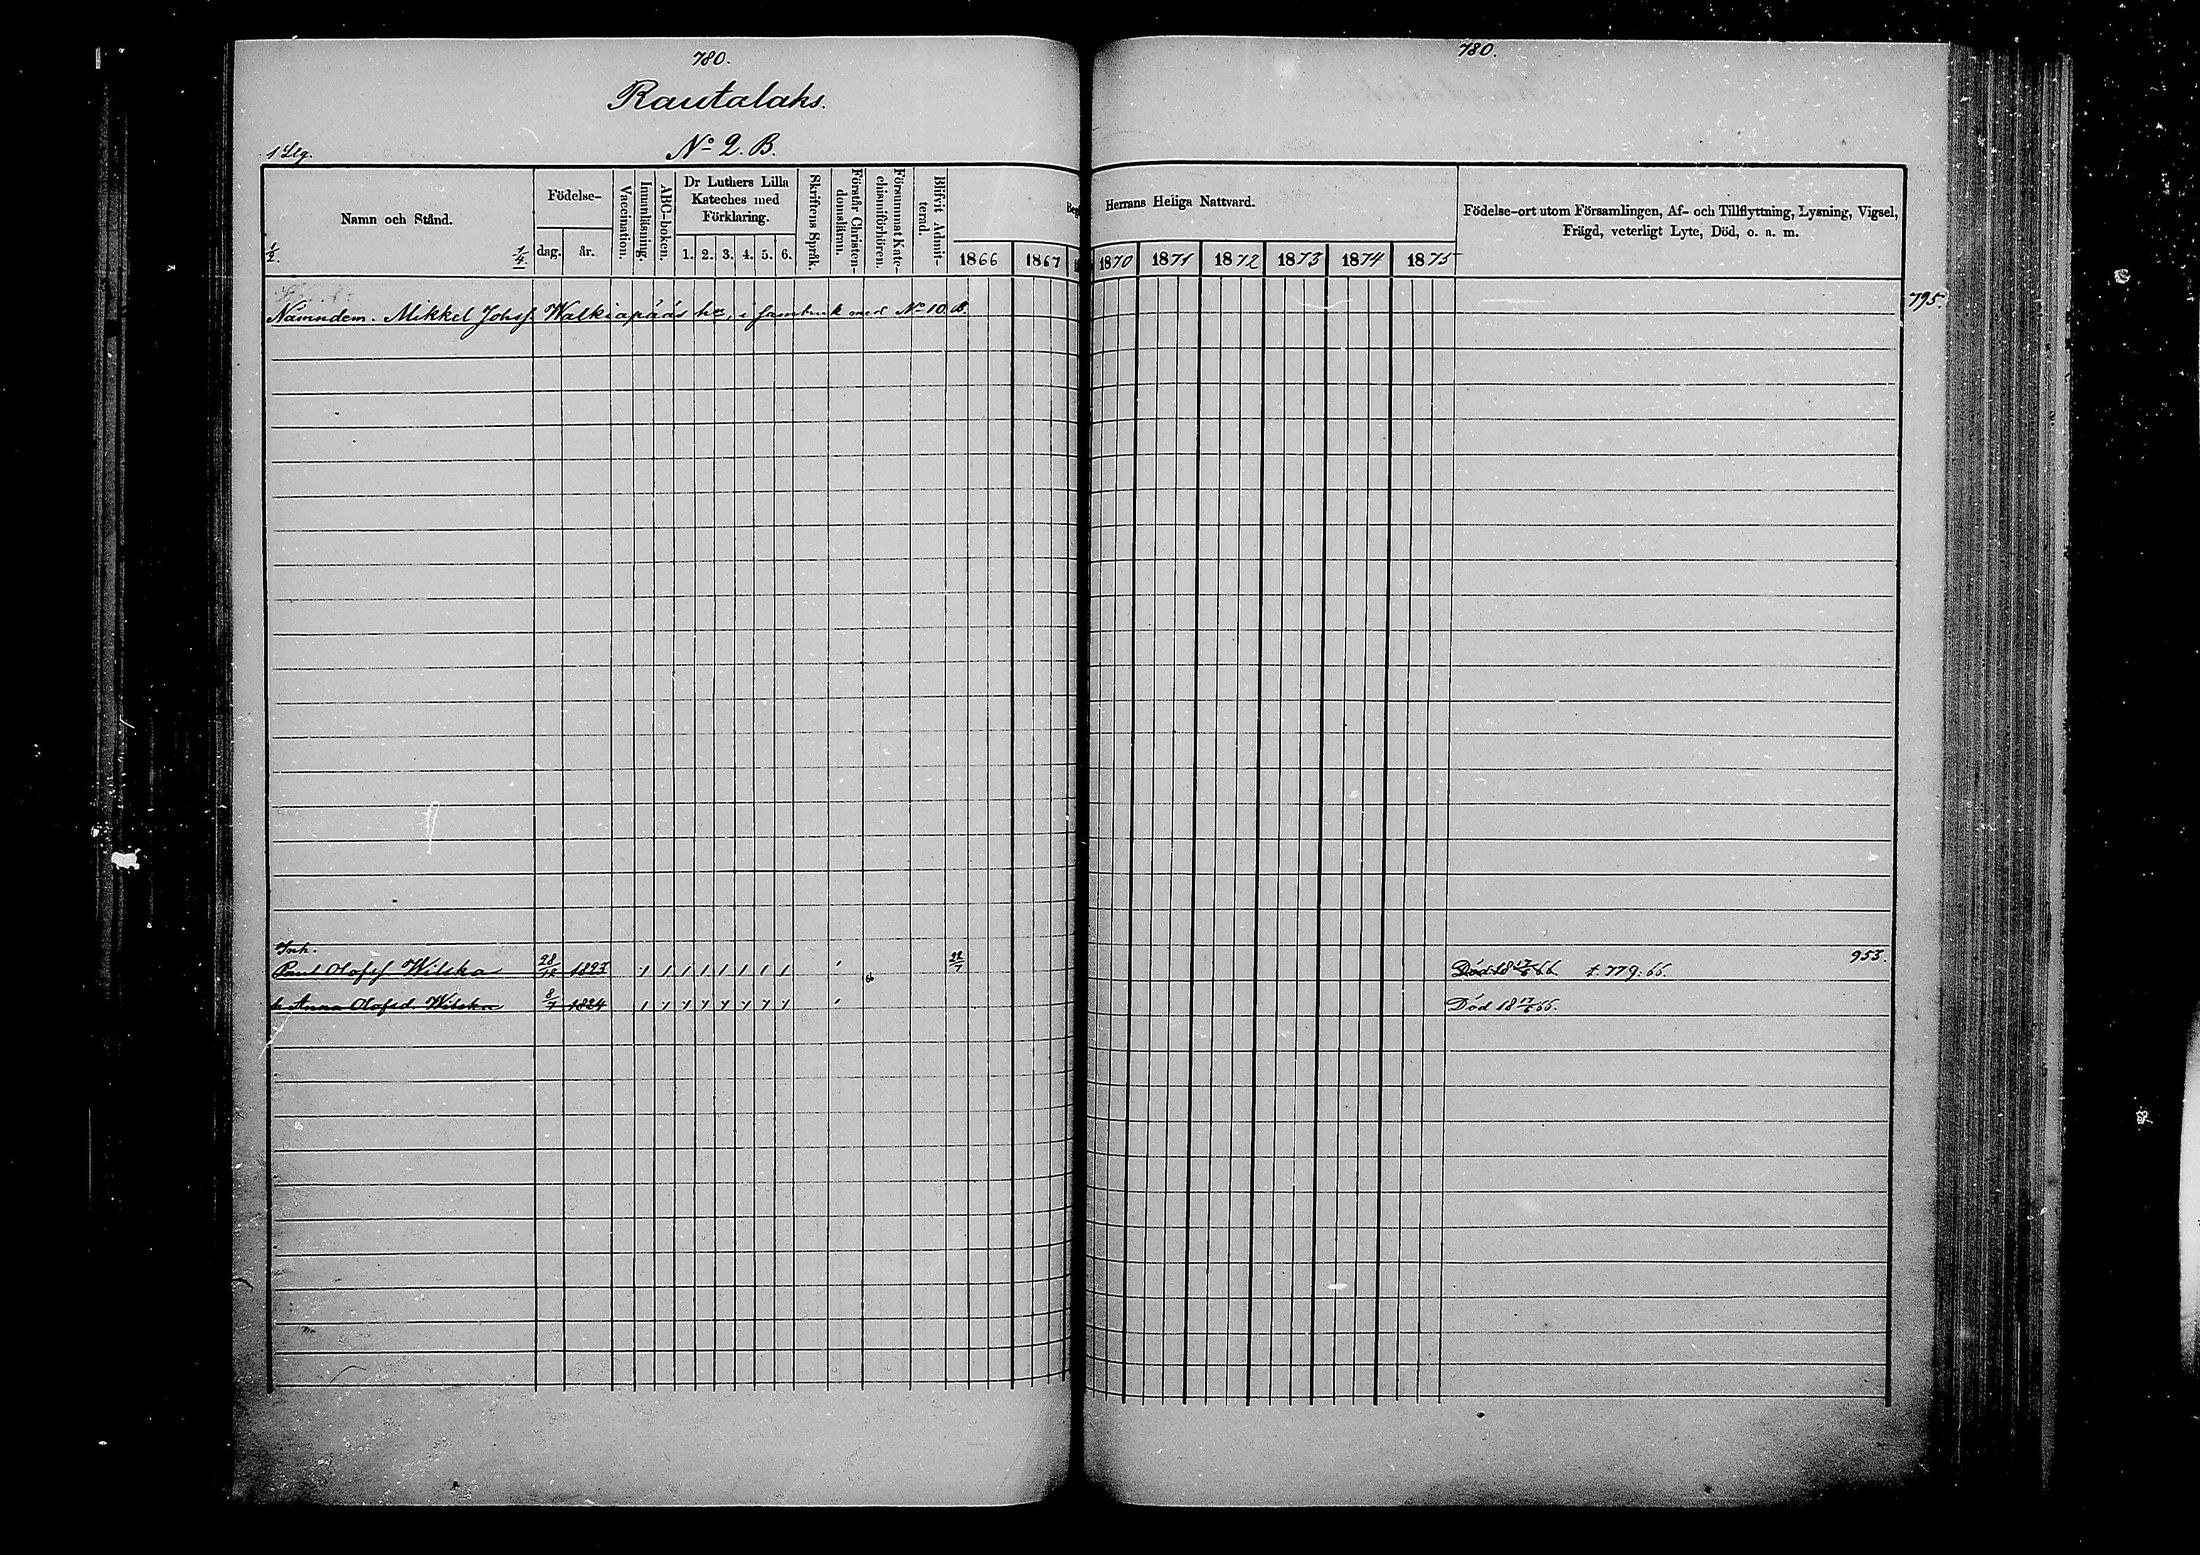 780.
780.
Rautalaks.
No 2. B.
Namn och Stånd.
1/2.
1/4
Födelse-
dag. år.
Vaccination.
Innanläsning.
ABC-boken.
Dr Luthers Lilla
Kateches med
Förklaring.
1. 2. 3. 4. 5. 6.
Skriftens Språk.
Förstår Christen-
domslärnn.
Försummat Kate-
chismiförhören.
Blifvit Admit-
terad
Beg
1866 1867
Herrans Heliga Nattvard.
1870 1871 1872 1873 1874 1875
Födelse-ort utom Församlingen, Af- och Tillflyttning, Lysning, Vigsel,
Frägd, veterligt Lyte, Död, o. a. m.
Nämndem. Mikkel Johsf Walkiapääs i sambruk med No 10. 795.
Inh.
Paul Olofsf Wilska 28/12 1823 1 1 1 1 1 1 1 1 66 Död 18 17/6 66. t. 779: 66. 953.
h. Anna Olofsd. Wilska 8/7 1824 1 1 1 1 1 1 1 1 Död 18 17/6 66.